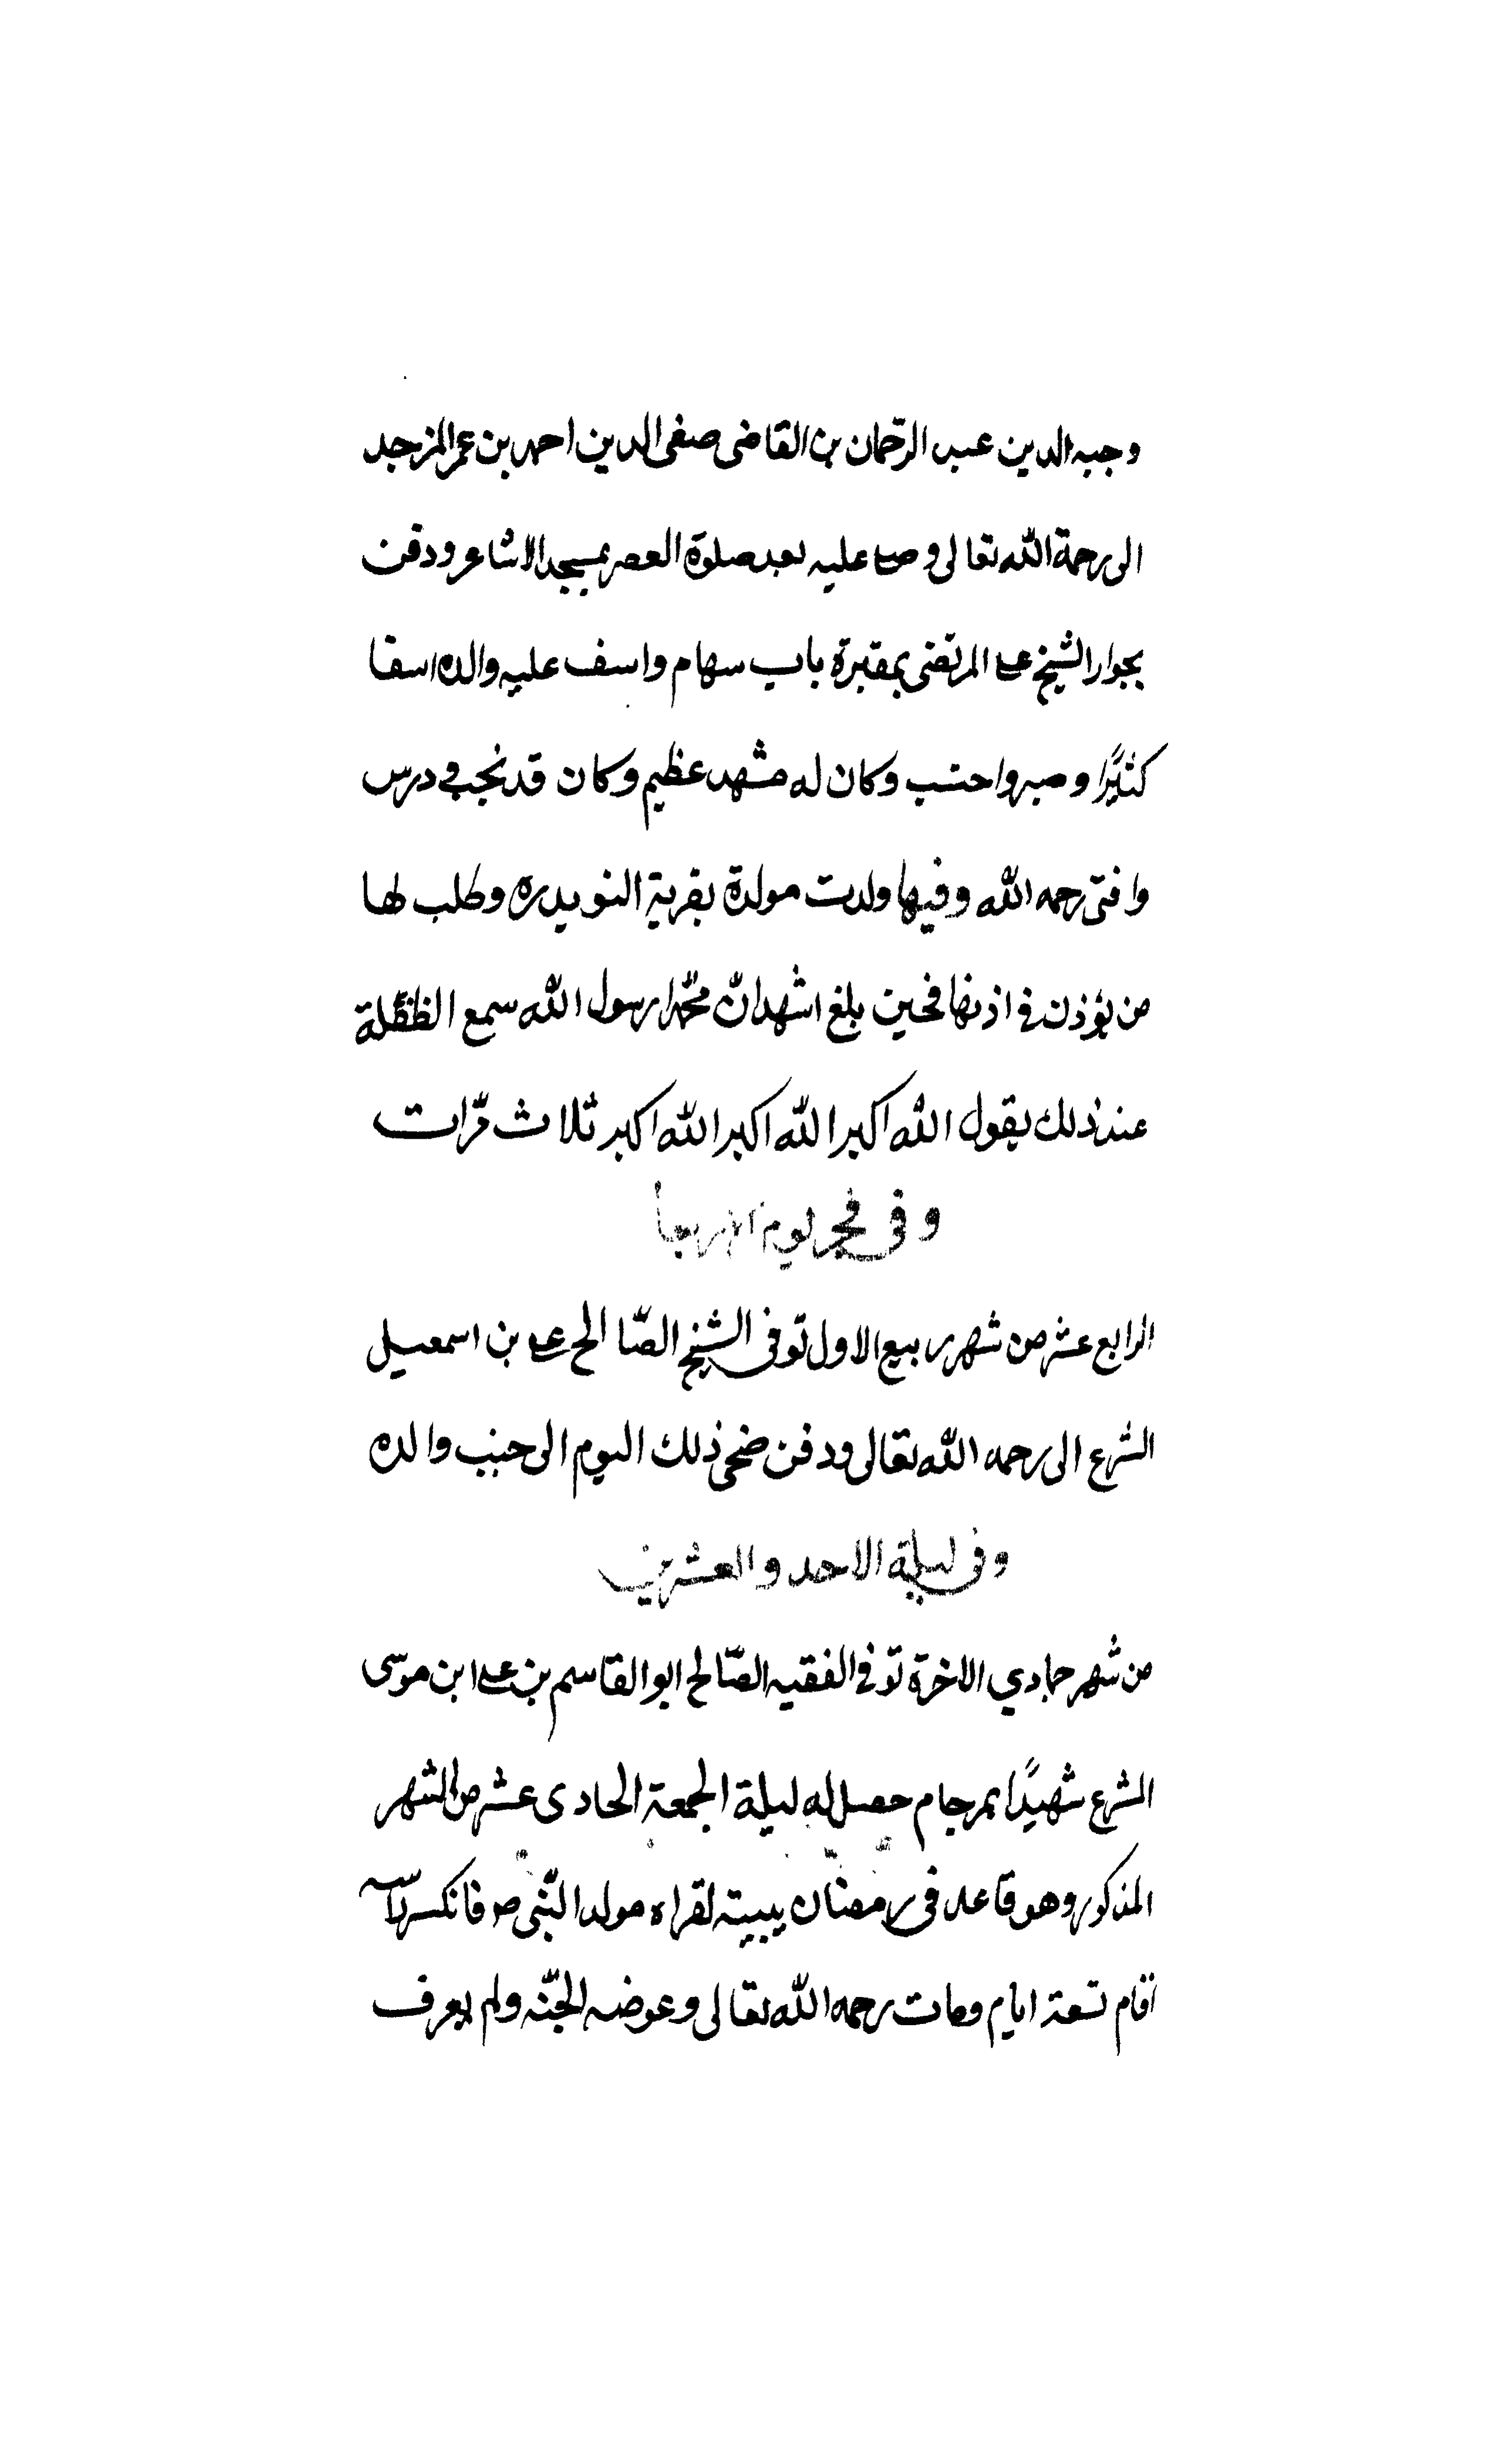 وجيه الدين عبد الرّحمان بن القاضى صفى الدين احمد بن عمر المزجد
الى رحمة الله تعالى وصلى عليه بعد صلوة العصر بمسجد الاشاعر ودفن
بجوار الشيخ على المرتضى بمقبرة باب سهام واسف عليه والده اسفا
كثيرًا وصبر واحتسب وكان له مشهد عظيم وكان قد نجب في درس
وافتى رحمه الله وفيها ولدت مولدة بقرية النويدره وطلب لها
من يؤذن في اذنها فحين بلغ اشهد انّ محمّدا رسول الله سمع الطفلة
عند ذلك يقول الله اكبر الله اكبر الله اكبر ثلاث مرّات
وفى فجر يوم الاربعا
الرابع عشر من شهر ربيع الاول توفى الشيخ الصّالح على بن اسمعيل
المشرع الى رحمه الله تعالى ودفن ضحى ذلك اليوم الى جنب والده
وفى ليلة الاحد والعشرين
من شهر جمادي الاخرة توفي الفقيه الصّالح ابو القاسم بن على ابن موسى
المشرع شهيدًا بمرجام حصل له ليلة الجمعة الحادى عشر من الشهر
المذكور وهو قاعد فى رمضان ببيته لقراه مولد النّبى ص فانكسر
اقام تسعة ايام ومات رحمه الله تعالى وعوضه الجنّه ولم يعرف